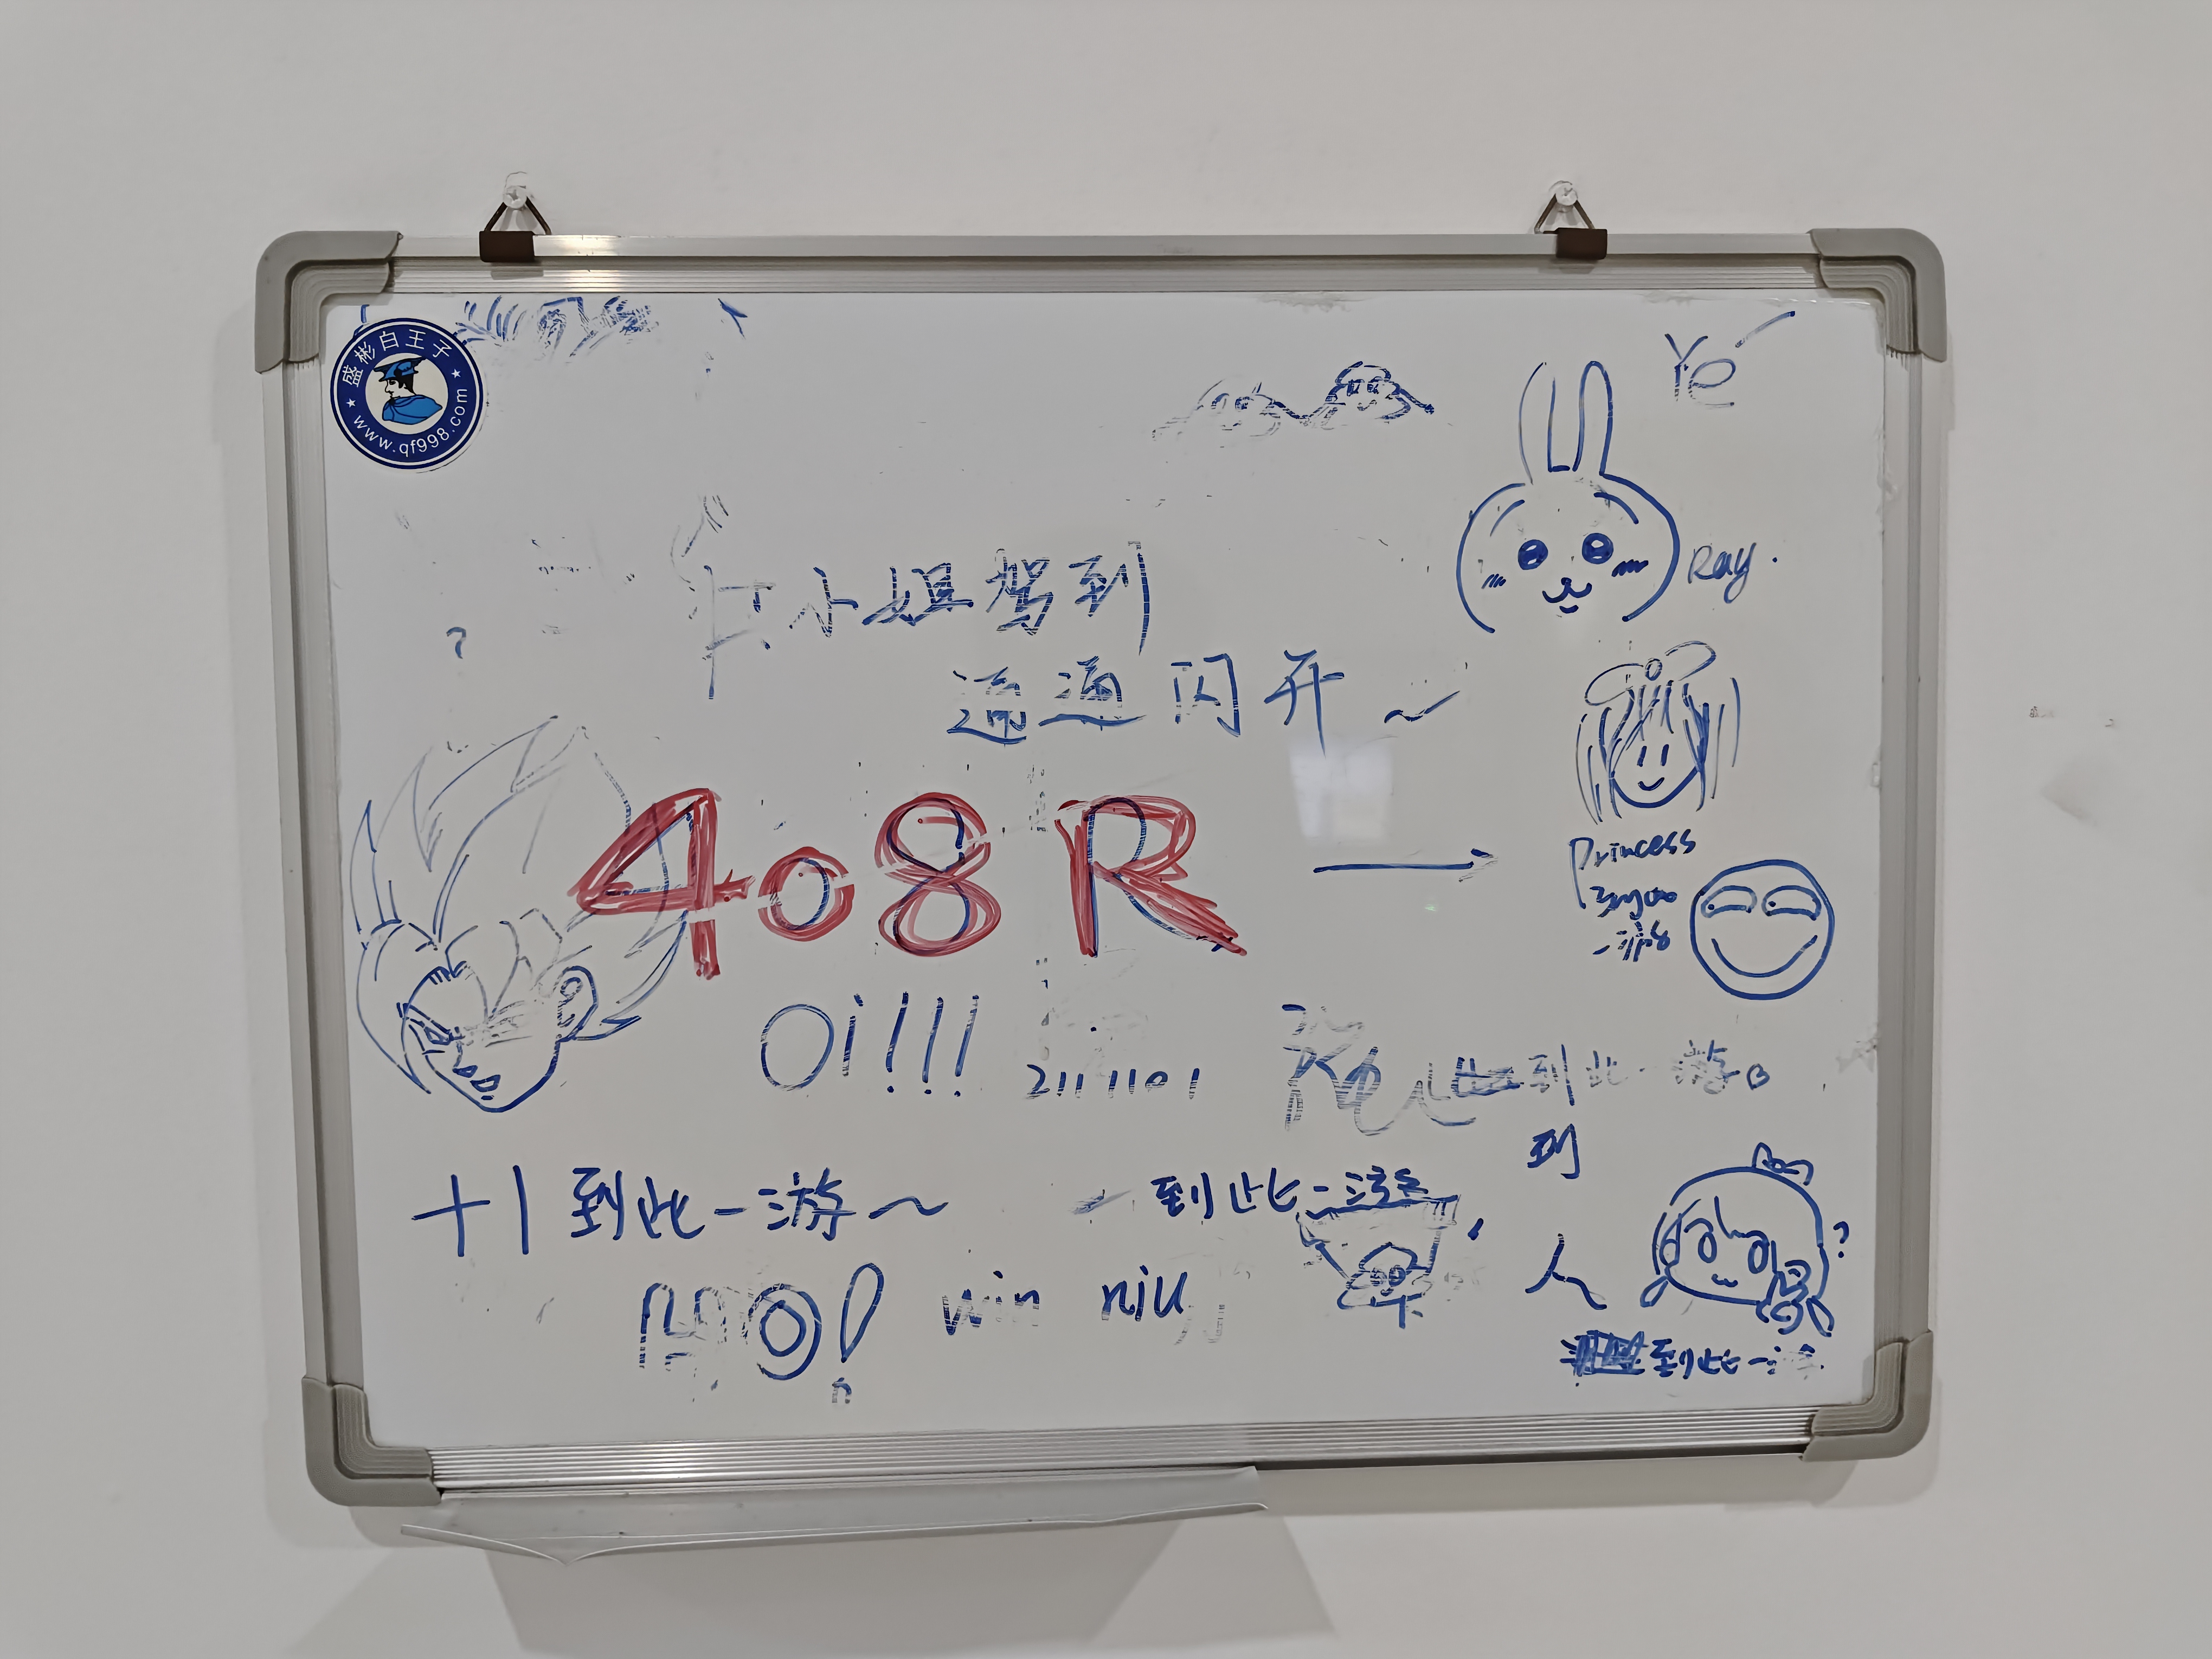 盛彬白王子
www.qf998.com
Ye
Ray.
小姐驾到
通通闪开~
408R
Princess
Oi!!!
2111101
到此一游。
到
十|到此一游~
到此一游
人
win niu
到此一游